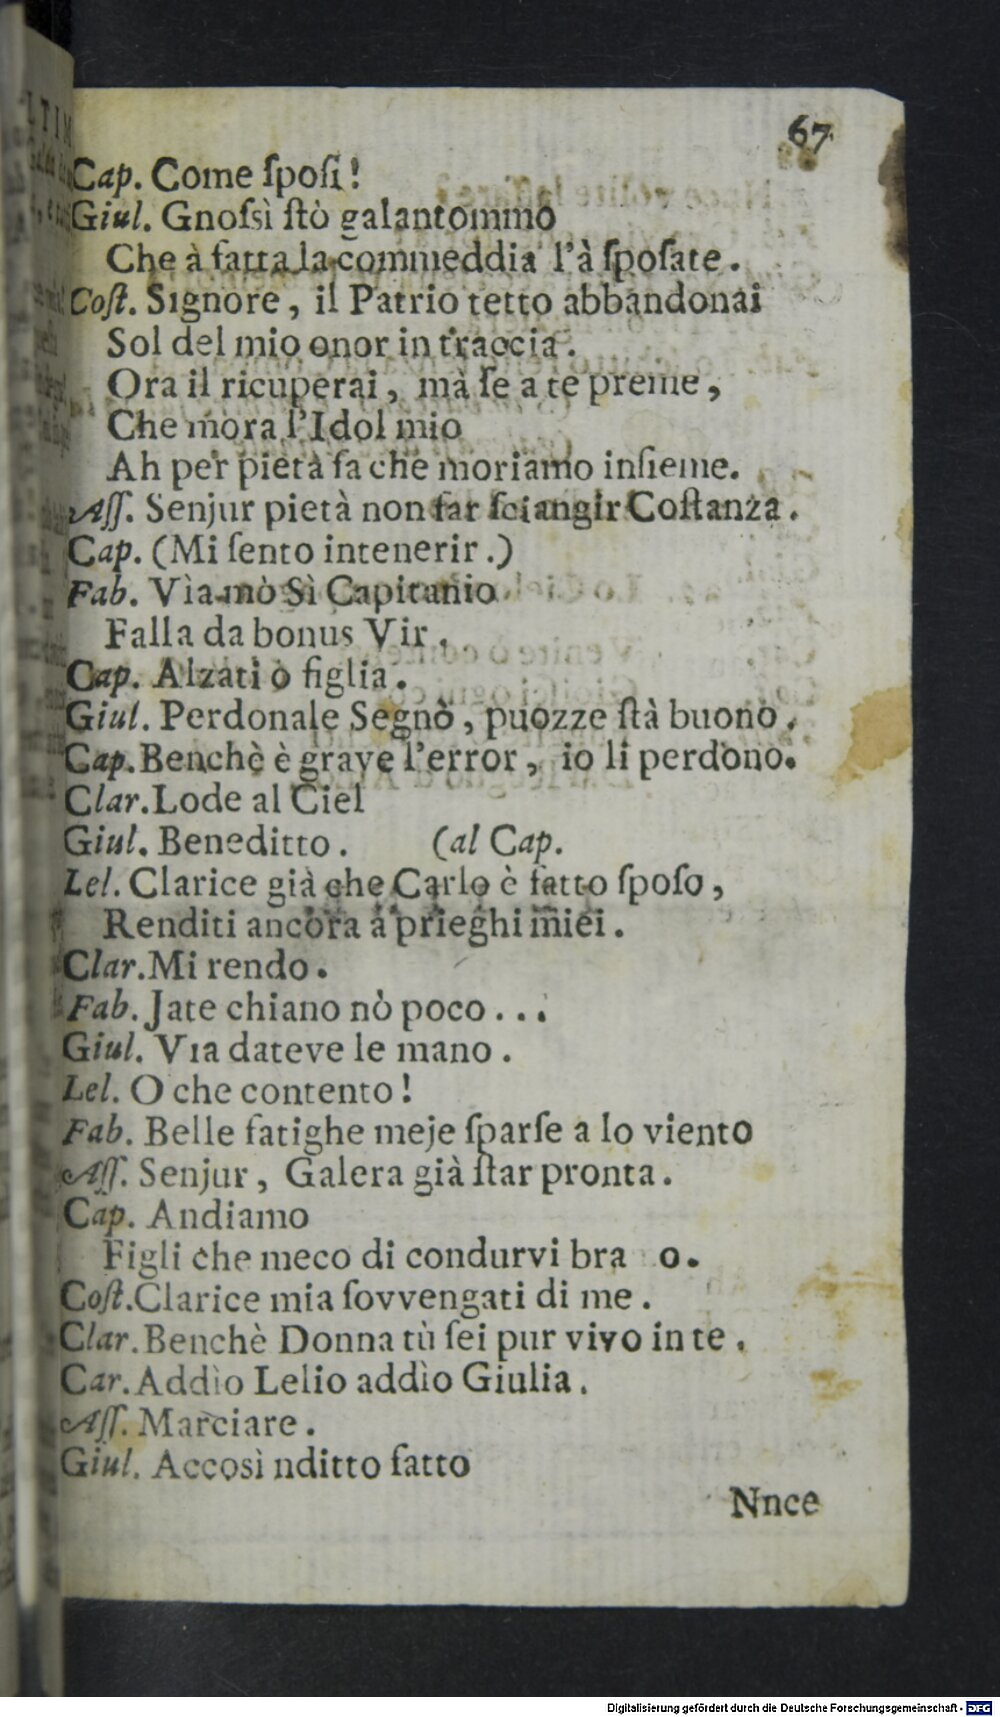 67
Cap. Come ſpoſi!
Giul. Gnoſsì ſtò galantommo
Che à fatta la commeddia l'à ſpoſate.
Coſt. Signore, il Patrio tetto abbandonai
Sol del mio onor in traccia.
Ora il ricuperai, mà ſe a te preme,
Che mora l'Idol mio
Ah per pietà fa che moriamo inſieme.
Aſſ. Senjur pietà non far ſciangir Coſtanza.
Cap. (Mi ſento intenerir.)
Fab. Vìa mò Sì Capitanio
Falla da bonus Vir.
Cap. Alzati ò figlia.
Giul. Perdonale Segnò, puozze ſtà buono.
Cap. Benchè è grave l'error, io li perdono.
Clar. Lode al Ciel
Giul. Beneditto. (al Cap.
Lel. Clarice già che Carlo è fatto ſpoſo,
Renditi ancora à prieghi miei.
Clar. Mi rendo.
Fab. Jate chiano nò poco...
Giul. Via dateve le mano.
Lel. O che contento!
Fab. Belle fatighe meje ſparſe a lo viento
Aſſ. Senjur, Galera già ſtar pronta.
Cap. Andiamo
Figli che meco di condurvi bra o.
Coſt. Clarice mia ſovvengati di me.
Clar. Benchè Donna tù ſei pur vivo in te.
Car. Addìo Lelio addìo Giulia.
Aſſ. Marciare.
Giul. Accosì nditto fatto
Nnce
Digitalisierung gefördert durch die Deutsche Forschungsgemeinschaft - DFG